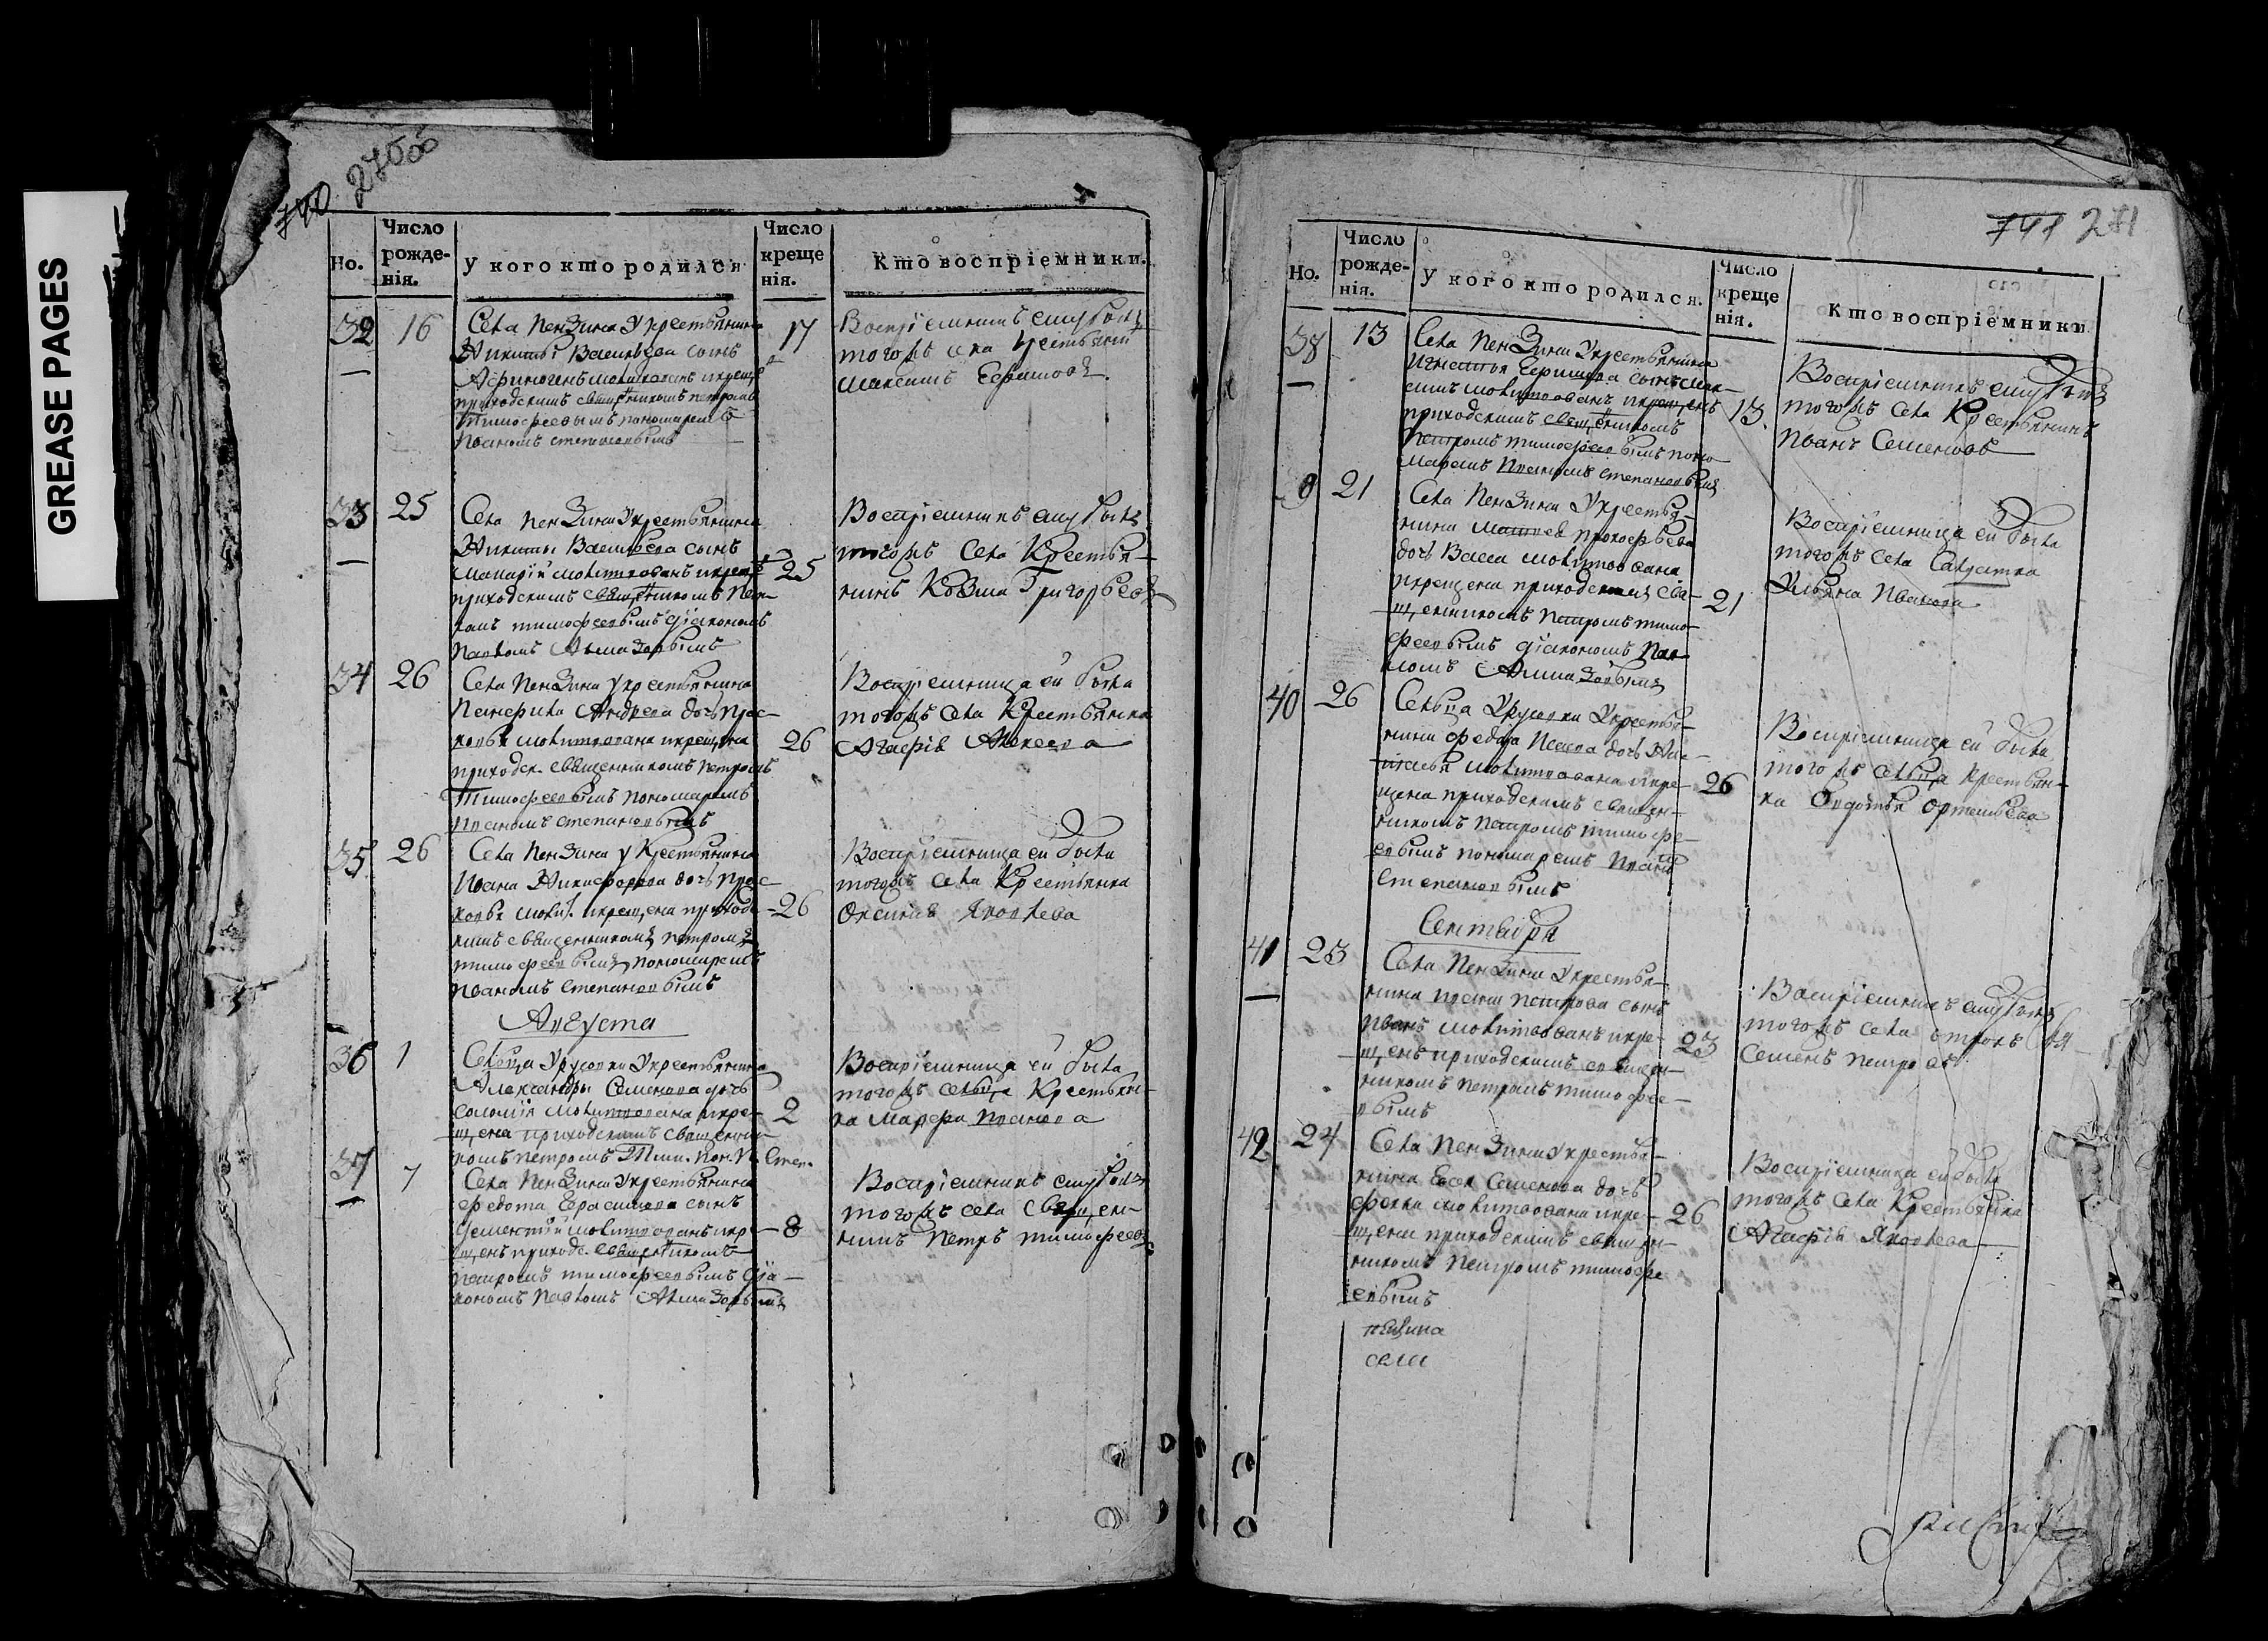 GREASE PAGES
740 270об
Но.
Число рожде-нія.
У кого кто родился
Число креще нія.
Кто воспріемники.
32 16
Села Пензина укрестьянина
Никиты Васильева сынъ
Афиногенъ молитвованъ икрещ.
приходскимъ священникомъ петромъ
Тимофеевымъ пономаремъ
Иваномъ степановымъ
17
Воспріемникъ ему былъ
тогожъ села крестьянин
Максимъ Герасимовъ
33 25
Села Пензина укрестьянина
Никиты Васильева сынъ
Макарій молитвованъ икрещ.
приходскимъ священникомъ Пет-
ромъ тимофеевымъ діакономъ
Павломъ Алмазовымъ
25
Воспріемникъ ему былъ
тогожъ села Крестья-
нинъ Козма Григорьевъ
34 26
Села Пензина укрестьянина
Панфила Андреева дочь Прас-
ковья молитвована икрещена
приходск. священникомъ петромъ
Тимофеевымъ пономаремъ
Иваномъ степановымъ
26
Воспріемница ей была
тогожъ села Крестьянка
Агафія Алексеева
35 26
Села Пензина у Крестьянина
Ивана Никифорова дочь Прас-
ковья молит. икрещена приходс-
кимъ священникомъ петромъ
тимофеевымъ пономаремъ
Иваномъ степановымъ
26
Воспріемница ей была
тогожъ села Крестьянка
Оксинія Яковлева
Августа
36 1
Сельца Урусовки укрестьянина
Александры Семенова дочь
Соломія молитвована икре-
щена приходскимъ священни-
комъ петромъ Тим. пон. И. Степ.
2
Воспріемница ей была
тогожъ сельца Крестьян-
ка Марфа Иванова
37 7
Села Пензина укрестьянина
Федота Герасимова сынъ
Дементій молитвованъ икр-
щенъ приходс. священникомъ
петромъ тимофеевымъ діа-
кономъ павломъ Алмазовымъ
8
Воспріемникъ ему былъ
тогожъ села Священ-
никъ Петръ тимофеевъ
741 271
Но.
Число рожде-нія.
У кого кто родился.
Число креще нія.
Кто воспріемники
38 13
Села Пензина укрестьянина
Игнатья Герасимова сынъ Мак-
симъ молитвованъ икрещенъ
приходскимъ священникомъ
Петромъ тимофеевымъ поно-
маремъ Иваномъ степановымъ
13.
Воспріемникъ ему былъ
тогожъ села Крестьянинъ
Иванъ Семеновъ
9 21
Села Пензина Укрестья-
нина Матвея прокофьева
дочь Васса молитвована
икрещена приходскимъ свя-
щенникомъ Петромъ тимо-
феевымъ діакономъ Пав-
ломъ Алмазовымъ
21
Воспріемница ей была
тогожъ села
Ульяна Иванова
40 26
Сельца Урусовки укрестья-
нина Федора Исаева дочь На-
талья молитвована икре-
щена приходскимъ священ-
никомъ Петромъ тимофе-
евымъ пономаремъ Иваном
Степановымъ
26
Воспріемница ей была
тогожъ сельца крестьян-
ка Овдотья Ортемьева
Сентября
41 23
Села Пензина Укрестья-
нина Ивана петрова сынъ
Иванъ молитвованъ икре-
щенъ приходскимъ священ-
никомъ петромъ тимофее-
вымъ
23
Воспріемникъ ему былъ
тогожъ села отрокъ
Семенъ петровъ
42 24
Села Пензина укрестья-
нина Евсея Семенова дочь
Фекла молитвована икре-
щена приходскимъ священ-
никомъ Петромъ тимофе
евымъ
26
Воспріемница ей была
тогожъ села Крестьянка
Агафія Яковлева
села